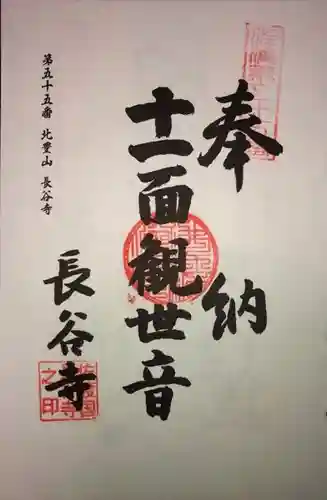 奉納
十一面観世音
長谷寺
第五十五番 北豊山 長谷寺